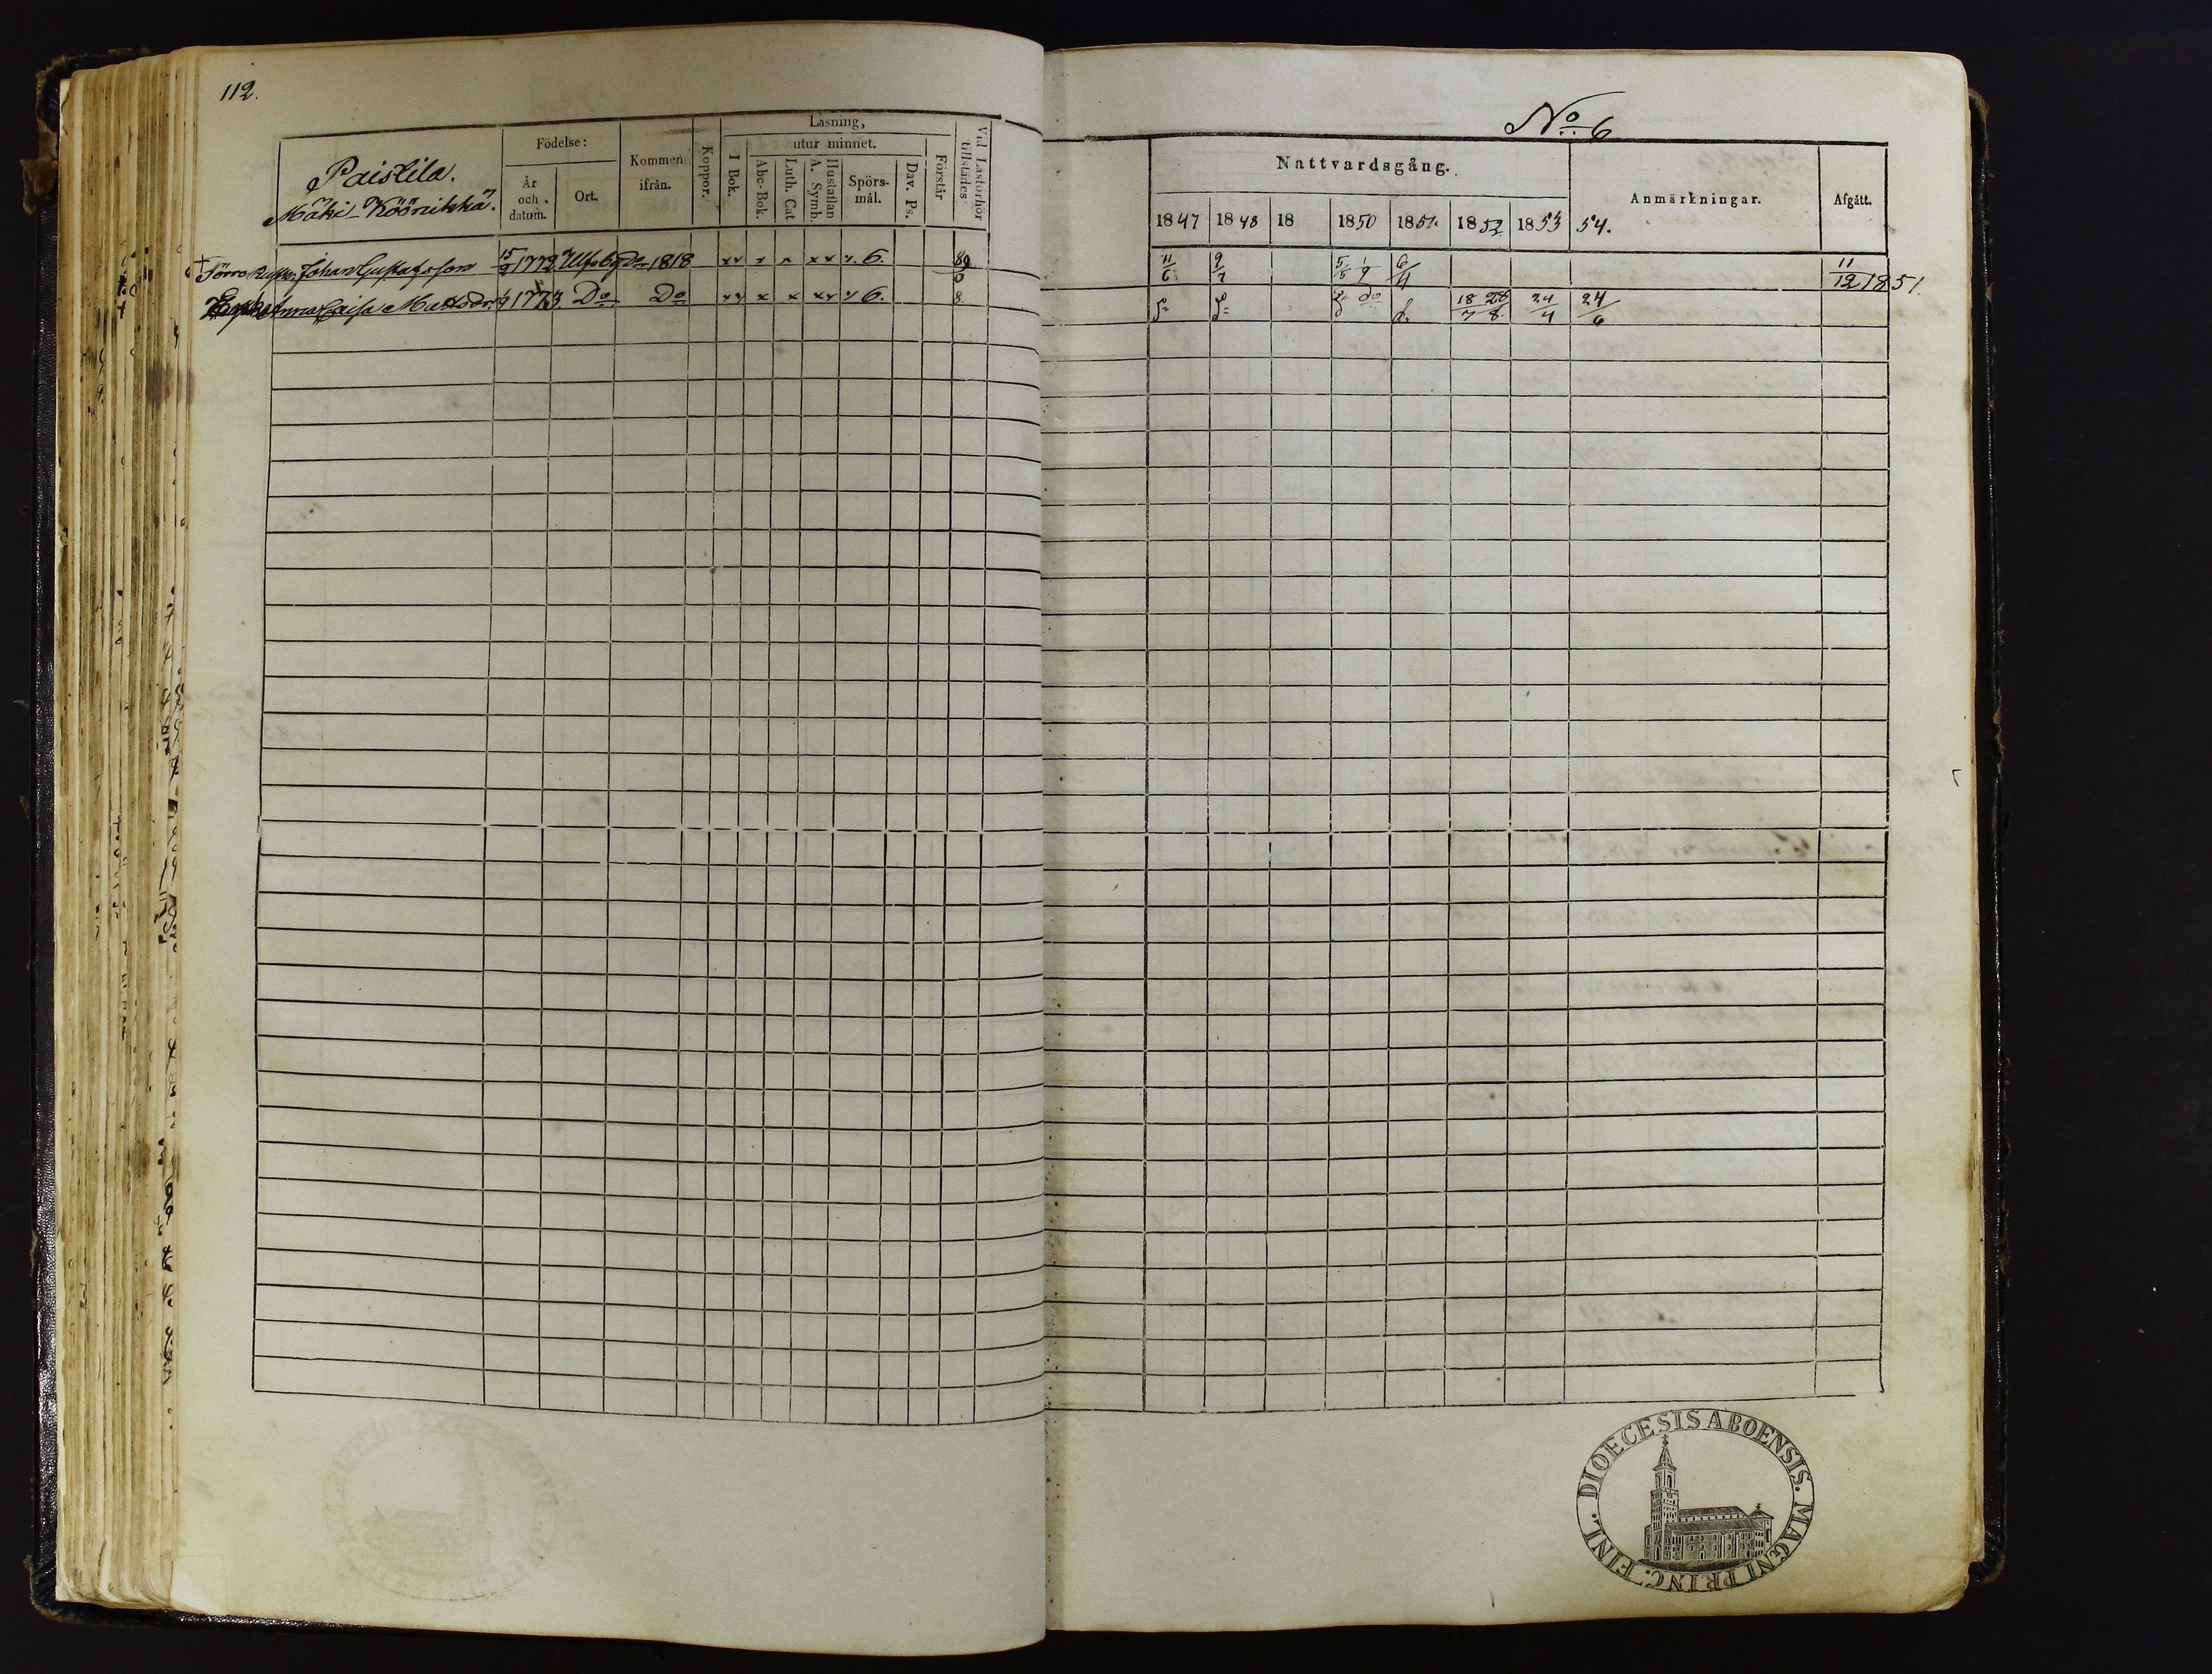 112.
Paistila.
Mäki-Köönikkä.
Födelse:
År och datum.
Ort.
Kommen ifrån.
Koppor.
Läsning,
I Bok.
utur minnet.
Abc-Bok.
Luth. Cat
Hustaflan A. Symb.
Spörsmål.
Dav. Ps.
Förstår
Vid Läsförhör tillstädes
† Johan Gustafsson 15/9 1772 Ulfsby Do 1818 xx x x xx x. 6. 89
0
Anna Caisa Matsdr. 1773. Do Do xx x x xx x 6. 8
No 6
Nattvardsgång.
Anmärkningar.
Afgått.
1847 1848 18 1850 1851. 1852 1853 54.
11/6 9/7 5/5 1/9 6/4 11/12 1851.
do 18/7 28/8 24/4 24/6
DIOECESIS ABOENSIS. MAGNI PRINC. FINL.